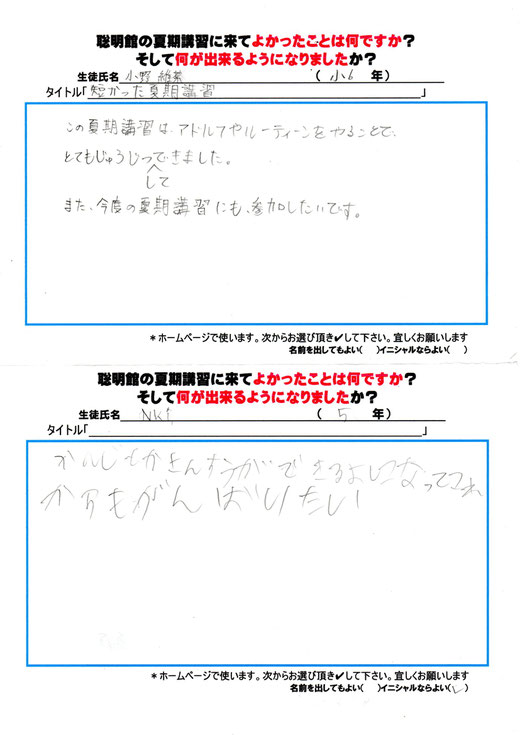 聡明館の夏期講習に来てよかったことは何ですか?
そして何が出来るようになりましたか?
生徒氏名 小野 (小6 年)
タイトル「短かった夏期講習」
この夏期講習は、アドルフやルーティーンをやることで、
とてもじゅうじつできました。
して
また、今度の夏期講習にも、参加したいです。
*ホームページで使います。次からお選び頂き✔して下さい。宜しくお願いします
名前を出してもよい( )イニシャルならよい( )
聡明館の夏期講習に来てよかったことは何ですか?
そして何が出来るようになりましたか?
生徒氏名 NK (5 年)
タイトル「 」
かんじやけいさんができるよになってこれ
からもがんばりたい
*ホームページで使います。次からお選び頂き✔して下さい。宜しくお願いします
名前を出してもよい( )イニシャルならよい(✓)